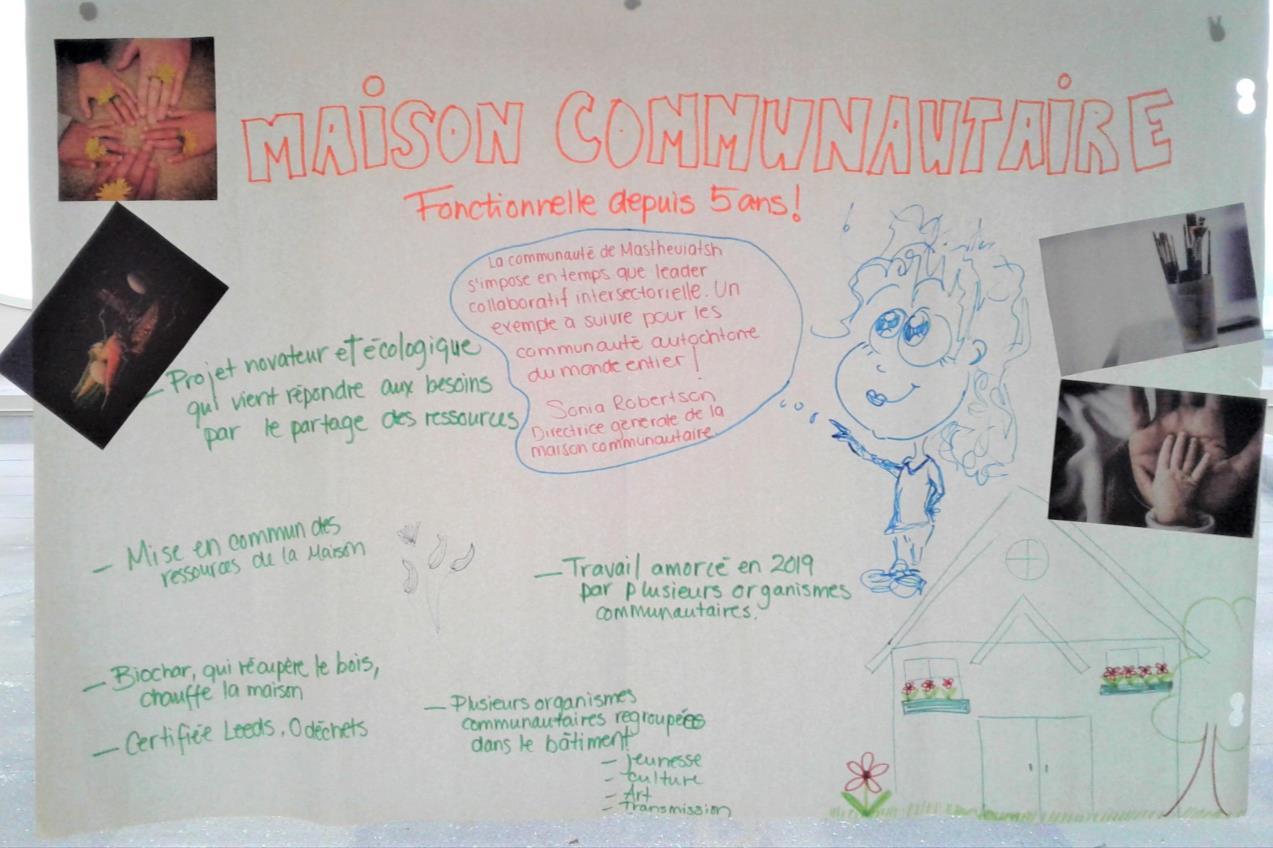 MAISON COMMUNAUTAIRE
Fonctionnelle depuis 5 ans!
La communauté de Mastheuiatsh
s'impose en temps que leader
collaboratif intersectorielle. Un
exemple à suivre pour les
communauté autochtone
du monde entier!
Sonia Robertson
Directrice générale de la
maison communautaire.
— Projet novateur et écologique
qui vient répondre aux besoins
par le partage des ressources
— Mise en commun des
ressources de la Maison
— Travail amorcé en 2019
par plusieurs organismes
communautaires.
— Biochar, qui récupère le bois,
chauffe la maison
— Certifiée Leeds, 0 déchets
— Plusieurs organismes
communautaires regroupées
dans le bâtiment
— jeunesse
— culture
— Art
— Transmission